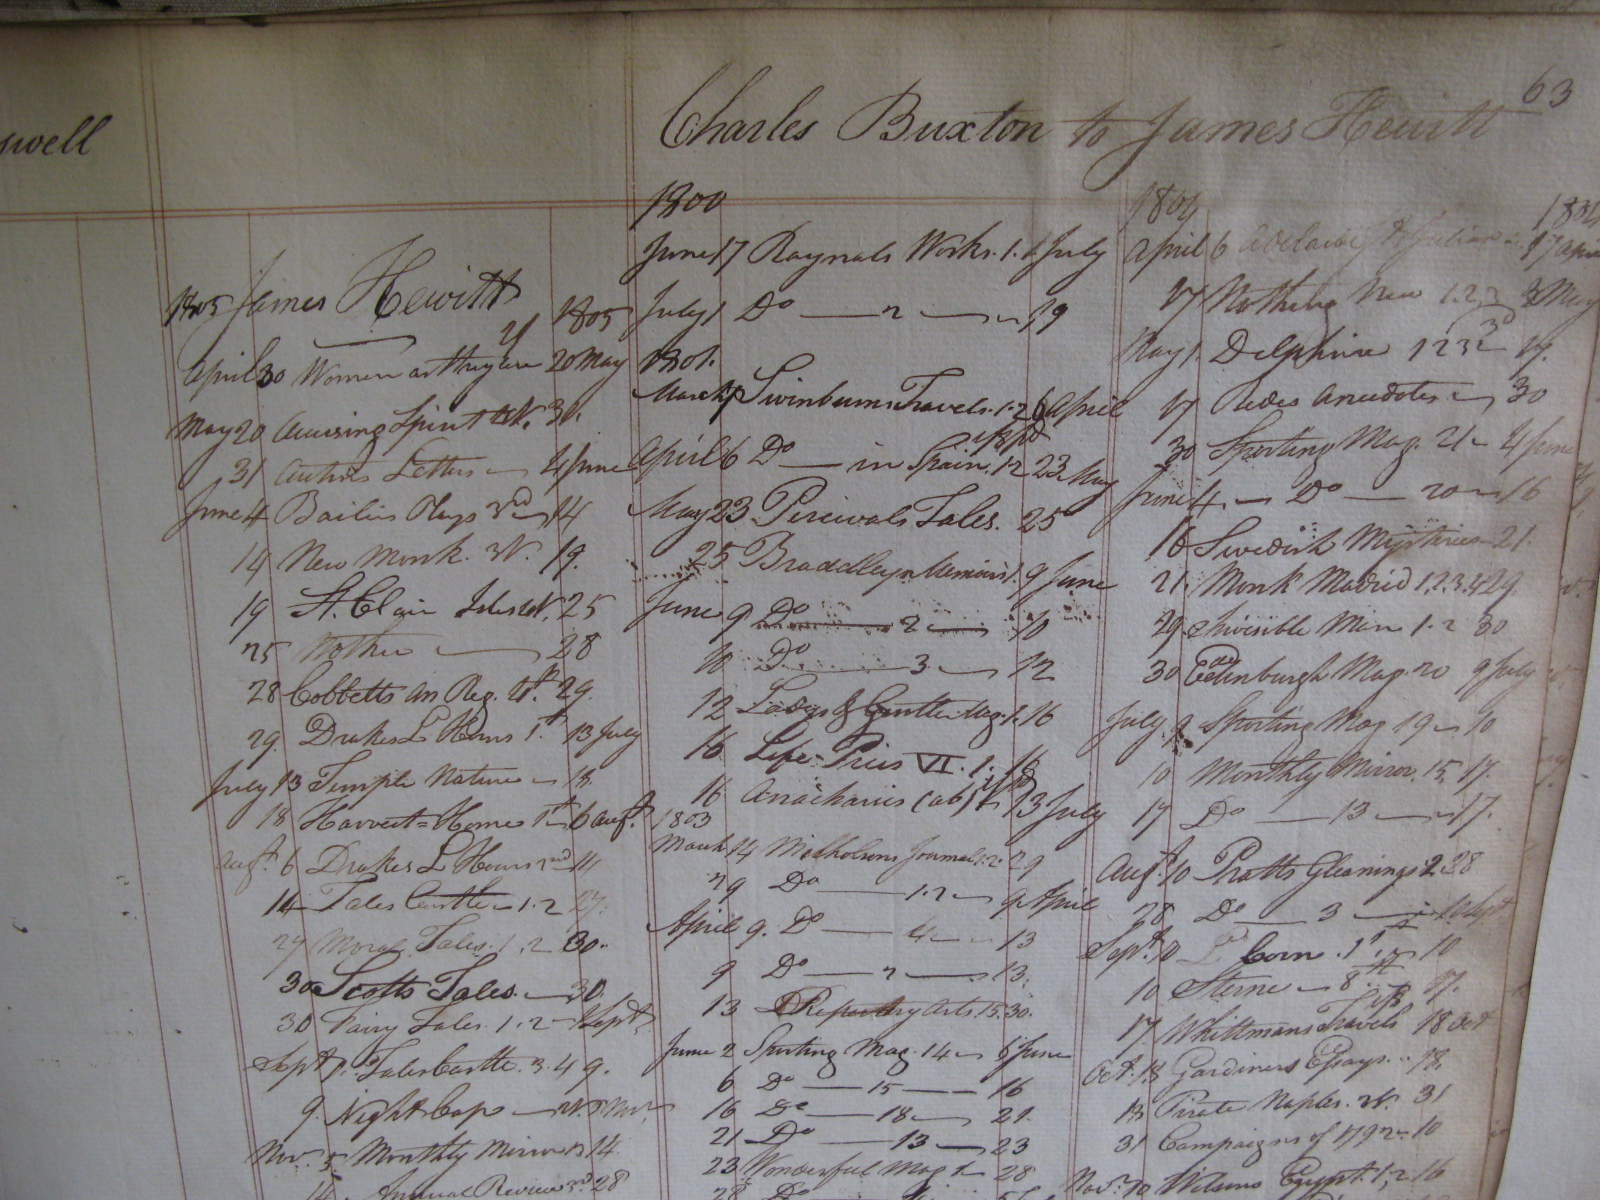 63
swell
Charles Buxton to James Hewitt
James Hewitt
1805 1805
April 30 Women as they are 20 May
May 20 Amusing Spirit 31.
31 Letters 4 June
June 4 Bailies Plays 3rd 14
14 New Monk. 3V. 19.
19 St. Clair Isles 25
25 Mother 28
28 Cobbetts An Reg. 29.
29. Drakes L Hours 1st 13 July
July 13 Temple Nature 18
18 Harvest=Home 1st 6 Augt.
Augt. 6 Drakes L Hours 2nd 14
14 Tales Castle 1.2 27.
27 Moral Tales. 1,2 30.
30 Scotts Tales. 30.
30 Fairy Tales. 1.2 1 Sept.
Sept 1. Tales Castle. 3.4 9.
9. Night Cap
Nov. 5 Monthly Mirror 13 14.
14. Annual Review 3rd 28
1800
June 17 Raynals Works. 1. 1 July
July 1 Do 2 19
1801.
March Swinburns Travels. 1.2 6 April
April 6 Do in Spain. 1.2 23 May
May 23 Percivals Tales. 25
25 Braddleys Memoirs 1. 9 June
June 9 Do 2 10
10 Do 3 12
12 Ladys & Gentle Mag. 1. 16
16 Life Pius VI. 1. 16
16 Anacharsis (ab) 13 July
1803
March 14 Nicholsons Journal. 1.2. 29
29 Do 1.2 9 April
April 9. Do 4 13
9 Do 2 13.
13 Repertory Arts. 15. 30.
June 2 Sporting Mag. 14 6 June
6 Do 15 16
16 Do 18 21
21 Do 13 23
23 Wonderful Mag 1 28
28 Do
1804 1804
April 6 Adelaide & 17 April
17 Nothing New 1.2.3 May
May 1. Delphine 1 2 3 17.
17 Anecdotes 30
30 Sporting Mag. 21 4 June
June 4 Do 20 16
16 Swedish Mysteries 21.
21. Monk Madrid 1.2.3.4 29.
29 Invisible Man 1.2 30
30 Edinburgh Mag. 20 9 July
July 9 Sporting Mag 19 10
10 Monthly Mirror. 15. 17.
17 Do 13 17.
Augt. 10 Pratts Gleanings 2 28
28 Do 3 10 Sept
Sept. 10 Corn. 1st 10
10 Sterne 8th 17.
17. Whittmans Travels 18 Oct
Oct. 18 Gardiners Essays. 18.
18 Pirate Naples. 31
31 Campaigns of 1792 10
Nov. 10 Wilsons Egypt. 1,2 16